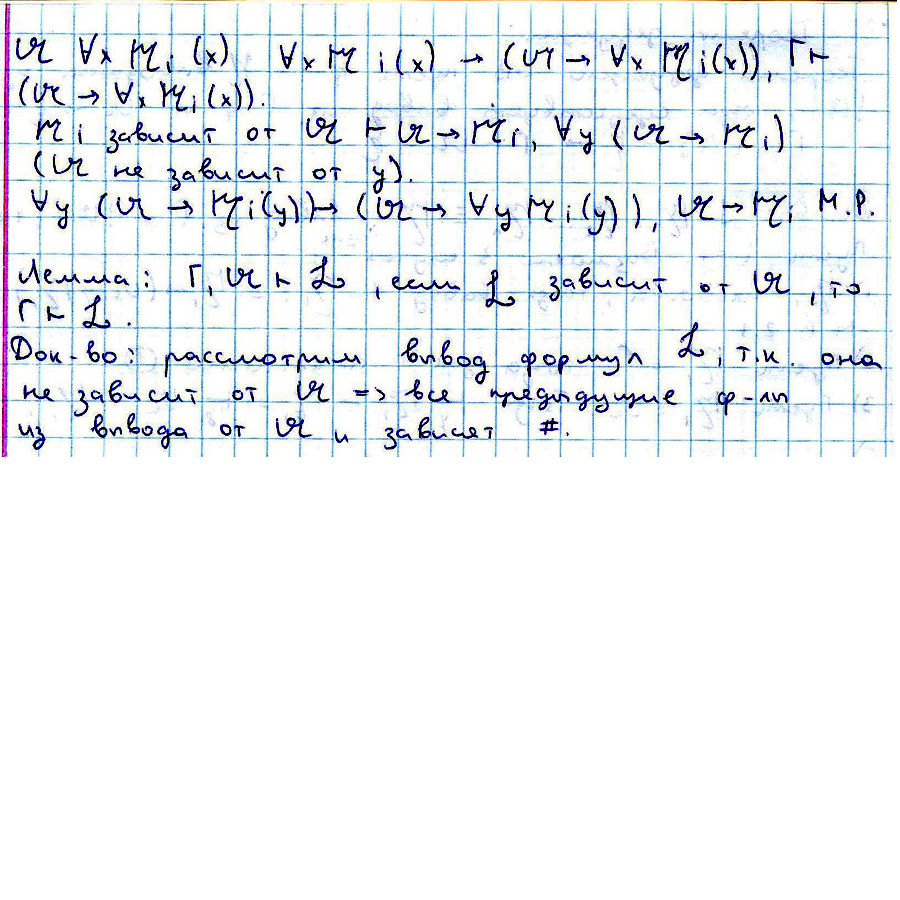 𝔄 ∀x 𝔐i (x) ∀x 𝔐i(x) → (𝔄 → ∀x 𝔐i(x)), Г ⊢
(𝔄 → ∀x 𝔐i(x)).
𝔐i зависит от 𝔄 ⊢ 𝔄 → 𝔐i, ∀y (𝔄 → 𝔐i)
(𝔄 не зависит от y).
∀y (𝔄 → 𝔐i(y)) → (𝔄 → ∀y 𝔐i(y)), 𝔄 → 𝔐i М.Р.
Лемма: Г, 𝔄 ⊢ ℒ, если ℒ зависит от 𝔄, то
Г ⊢ ℒ.
Док-во: рассмотрим вывод формул ℒ, т.к. она
не зависит от 𝔄 => все предыдущие ф-лы
из вывода от 𝔄 и зависят #.